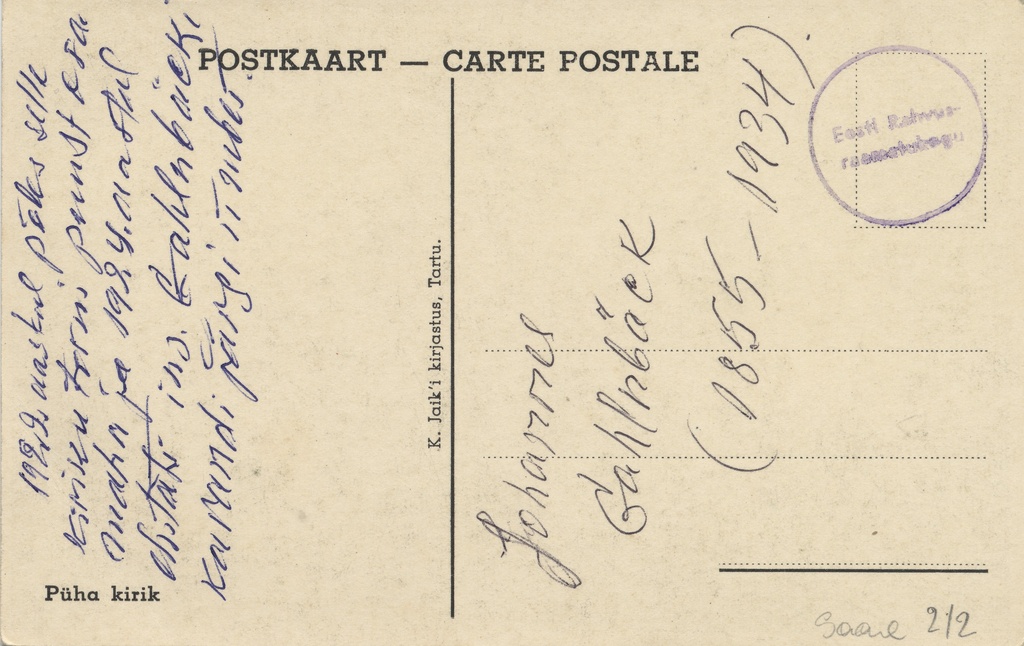 POSTKAART — CARTE POSTALE
Eesti Rahvus-
raamatukogu
aastal põles selle
kiriku torni puust osa
maha ja 1924. aastal
ehitati ins. Gahlnbäcki
kavandi järgi ümber
Püha kirik
K. Jaik'i kirjastus, Tartu.
Johannes
Gahlnbäck
(1855–1934).
Saare 2/2